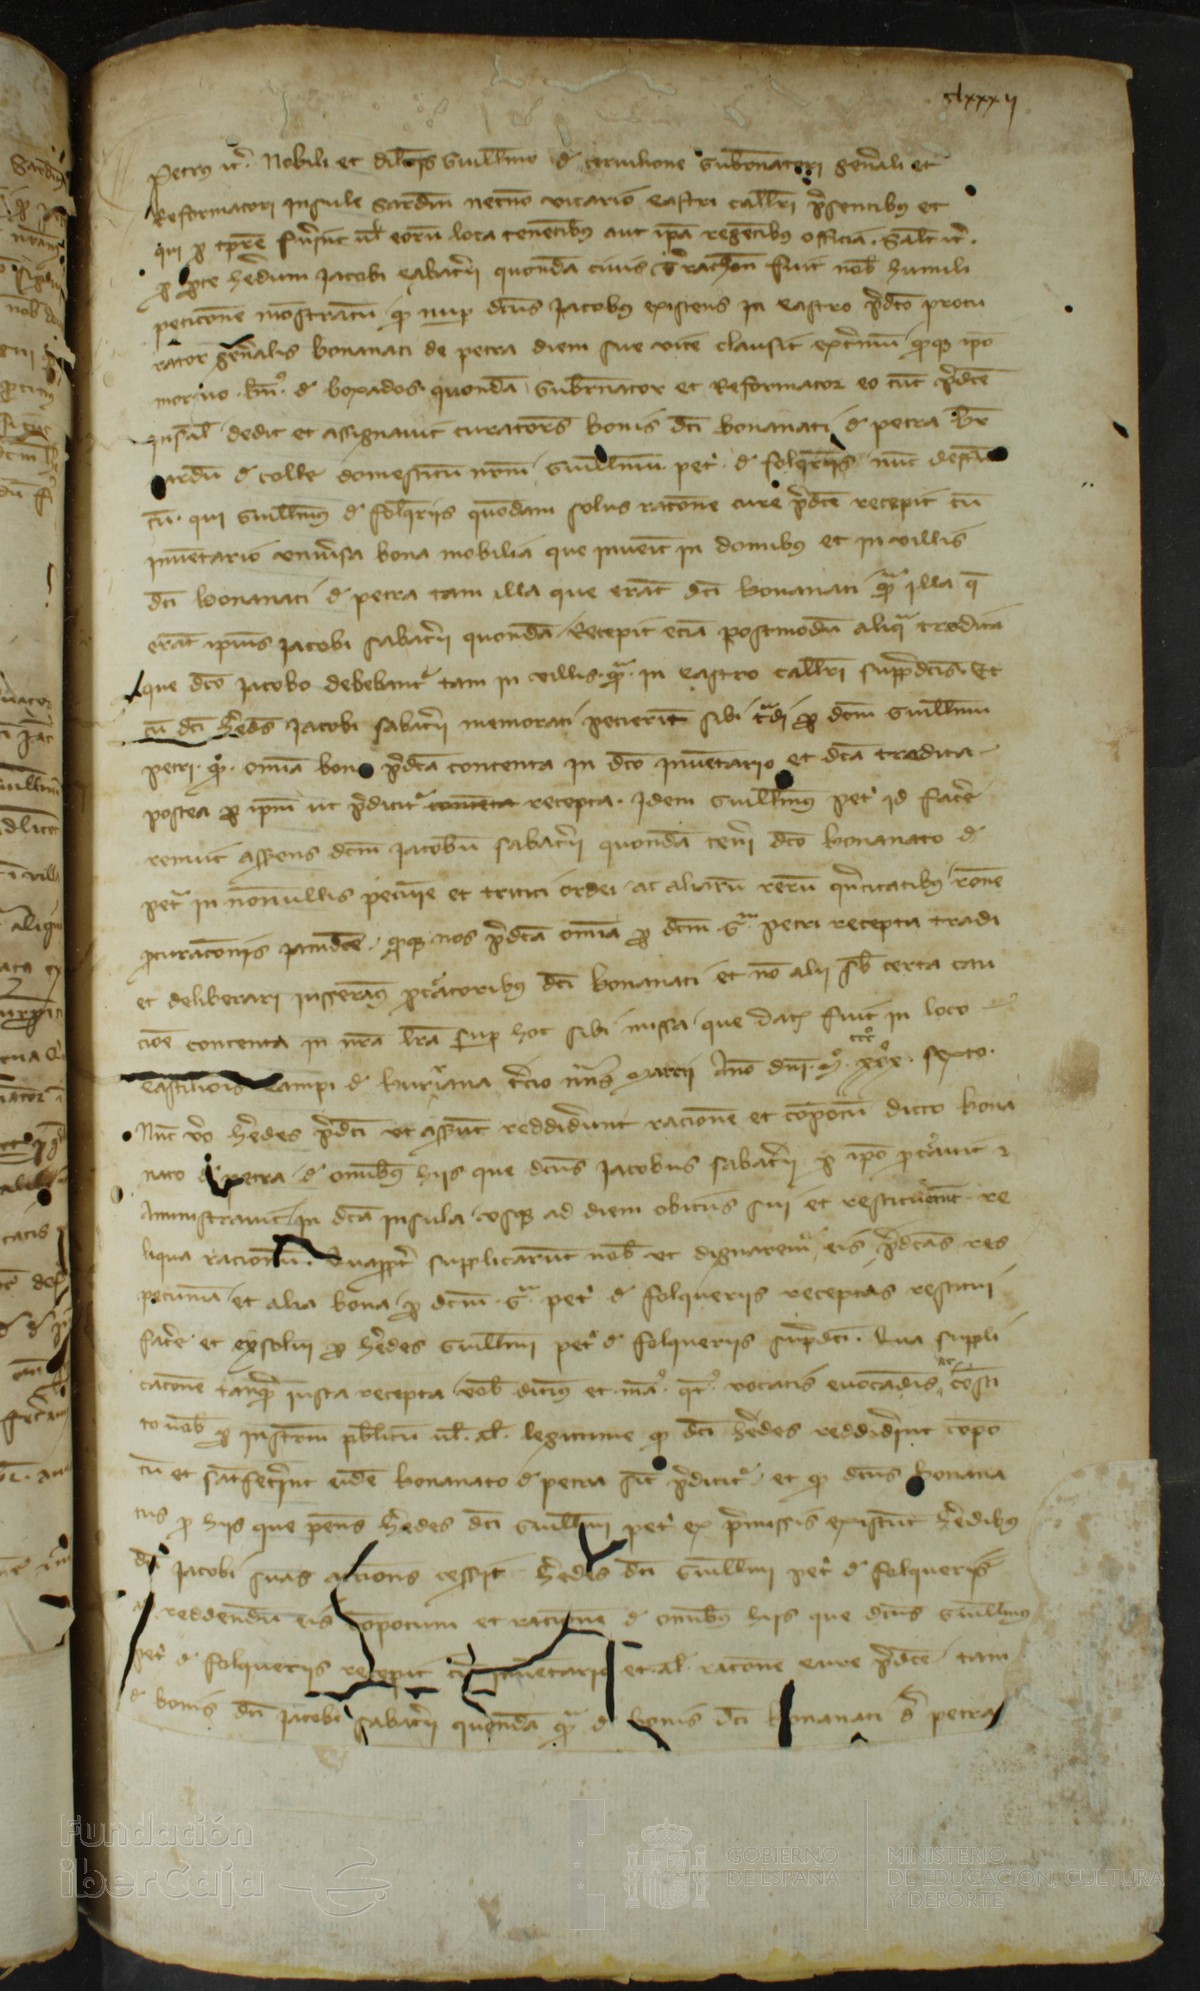 clxxxij
Petrus etc. Nobili et dilecto Guillelmo de Cervilione Gubernatori generali et
Reformatori Insule Sardinie necnon vicario Castri Callari presentibus et
qui pro tempore fuerint vel eorum loca tenentibus aut ipsa regentibus officia. Salutem etc.
pro parte heredum Jacobi Sabaterii quondam civis fuit nobis humili
peticione monstratum quod nuper dictus Jacobus existens in Castro predicto procu
rator generalis Bonanati de petra diem sue vite clausit extremum quodque ipso
mortuo Bn. de Boxados quondam Gubernator et Reformator eo tunc predicte
insule dedit et assignavit curatores bonis dicti Bonanati de petra Ber
nardum de colle domesticum nostrum Guillelmum petri de folqueriis nunc defunc
tum. qui Guillelmus de folqueriis quondam solus racione cure predicte recepit cum
inventario universa bona mobilia que invenit in domibus et in villis
dicti Bonanati de petra tam illa que erant dicti Bonanati quam illa que
erant ipsius Jacobi Sabaterii quondam Recepit eciam postmodum aliqua credita
que dicto Jacobo debebantur tam in villis quam in Castro Callari supradictis. Et
cum dicti heredes Jacobi Sabaterii memorati pecierint sibi tradi per dictum Guillelmum
petri omnia bona predicta contenta in dicto inventario et dicta credita
postea per ipsum ut predicitur recepta. Idem Guillelmus petri id facere
renuit asserens dictum Jacobum Sabaterii quondam teneri dicto Bonanato de
petra in nonnullis peccunie et tritici ordei ac aliarum rerum quantitatibus racione
procuracionis jamdicte quodque nos predicta omnia per dictum G. petri recepta tradi
et deliberari jusseramus procuratoribus dicti Bonanati et non alii sub certa cau
cione contenta in nostra littera super hoc sibi missa que data fuit in loco
Castilionis campi de Burriana tercio nonas Marcii Anno domini Mº CCCº XXXº sexto.
Nunc vero heredes predicti ut asserunt reddiderunt racionem et compotum dicto Bona
nato de petra de omnibus hiis que dictus Jacobus Sabaterii pro ipso procuravit et
Aministravit in dicta insula usque ad diem obitus sui et restituerunt re
liqua racionum. Quapropter supplicarunt nobis ut dignaremur eis predictas res
pecuniam et alia bona per dictum G. petri de folqueriis receptas restitui
facere et exsolvi per heredes Guillelmi petri de folqueriis supradicti. Qua suppli
cacione tanquam justa recepta vobis dicimus et mandamus quatenus vocatis evocandis ac consti
to vobis per instrumentum publicum vel alias legitime quod dicti heredes reddiderint compo
tum et satisfecerint eidem Bonanato de petra sicut predicitur et quod dictus Bonana
tus pro hiis que penes heredes dicti Guillelmi petri ex premissis existunt heredibus
dicti Jacobi suas acciones cessit heredes dicti Guillelmi petri de folqueriis
ad reddendum eis compotum et racionem de omnibus hiis que dictus Guillelmus
petri de folqueriis recepit cum inventario et alias racione cure predicte tam
de bonis dicti Jacobi Sabaterii quondam quam de bonis dicti Bonanati de petra
Fundación
iberCaja
GOBIERNO
DE ESPAÑA
MINISTERIO
DE EDUCACIÓN, CULTURA
Y DEPORTE